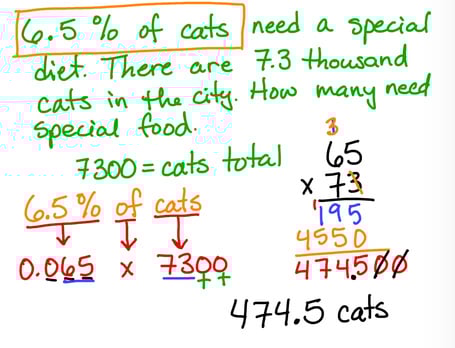 6.5% of cats need a special
diet. There are 7.3 thousand
cats in the city. How many need
special food.
7300 = cats total
6.5% of cats
0.065 x 7300
+ +
3
65
x 73
1195
4550
474.500
474.5 cats